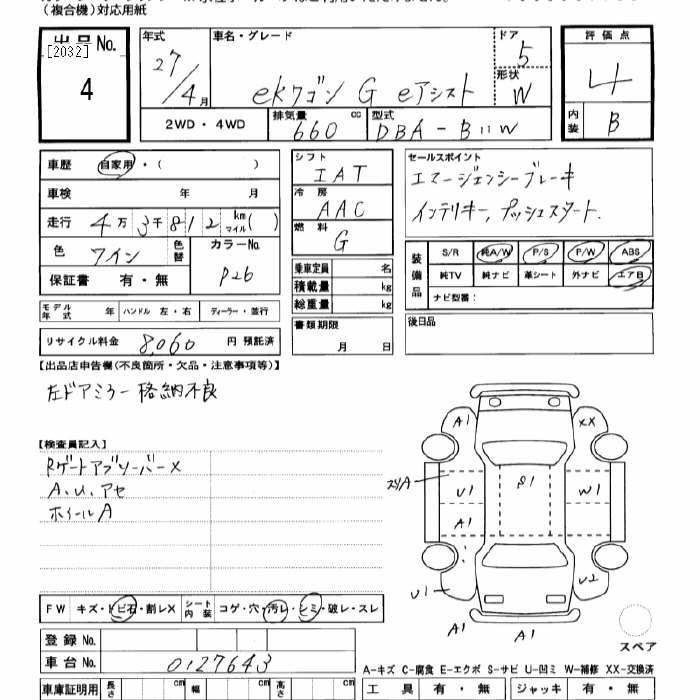 (複合機)対応用紙
出品No.
[2032]
4
年式 27/4月
車名・グレード ekワゴン G eアシスト
ドア 5
形状 W
評価点 4
内装 B
2WD・4WD
排気量 660 cc
型式 DBA-B11W
車歴 自家用・( )
車検 年 月
走行 4万3千812 km マイル( )
色 ワイン 色替
カラーNo. P26
保証書 有・無
シフト IAT
冷房 AAC
燃料 G
乗車定員 名
積載量 kg
総重量 kg
書類期限 月 日
セールスポイント
エマージェンシーブレーキ
インテリキー,プッシュスタート.
装備品
S/R 純A/W P/S P/W ABS
純TV 純ナビ 革シート 外ナビ エアB
ナビ型番:
後日品
モデル年式 年 ハンドル 左・右 ディーラー・並行
リサイクル料金 8,060 円 預託済
【出品店申告欄(不良箇所・欠品・注意事項等)】
左ドアミラー格納不良
【検査員記入】
Rゲートアブソーバー×
A.U.アセ
ホイールA
A1 XX
スリA
U1 S1 W1
A1
U1 U2
A1 A1
スペア
FW キズ・トビ石・割レX シート内装 コゲ・穴・汚レ・シミ・破レ・スレ
登録No.
車台No. 0127643
A-キズ C-腐食 E-エクボ S-サビ U-凹ミ W-補修 XX-交換済
車庫証明用 長さ cm 幅 cm 高さ cm
工具 有・無 ジャッキ 有・無